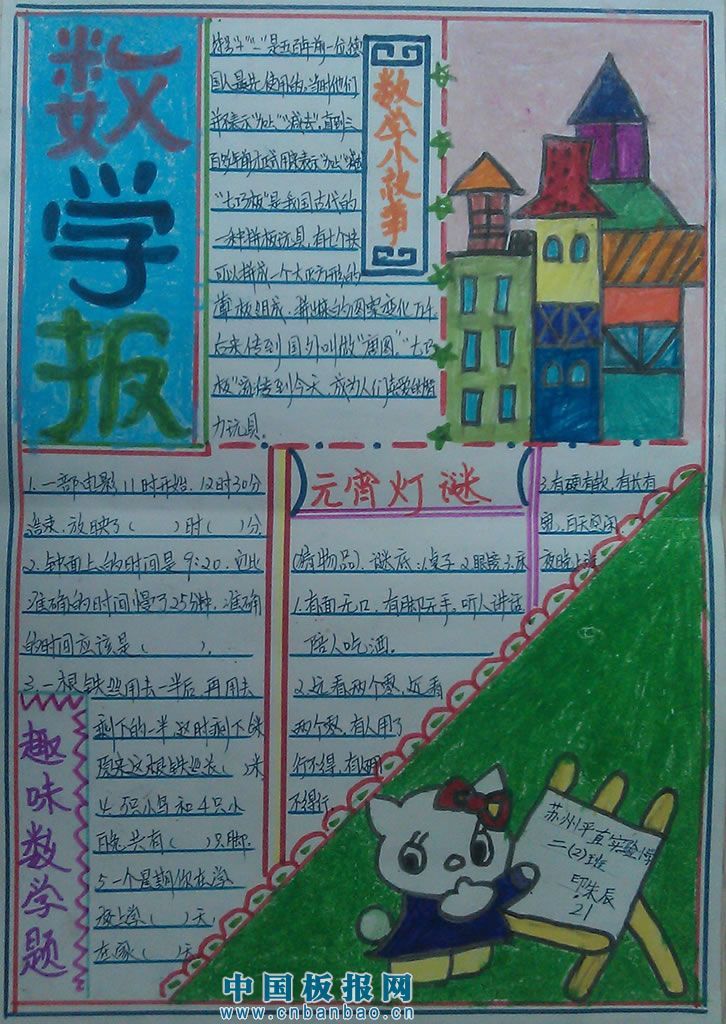 数学报
数学小故事
国人最先使用的,当时他们
"七巧板"是我国古代的
一种拼板玩具,有七个块
可以拼成一个大正方形的
薄板组成,拼出来的图案变化万千,
后来传到国外叫做"唐图"."七巧
板"流传到今天,成为人们喜爱的智
力玩具.
1.一部电影11时开始,12时30分
结束,放映了( )时( )分.
2.钟面上的时间是9:20,它比
准确的时间慢了25分钟,准确
的时间应该是( ).
3.一根铁丝用去一半后,再用去
剩下的一半,这时剩下
原来这根铁丝长( )米
4.5只小鸟和4只小
兔共有( )只脚.
5一个星期你在学
校上学( )天,
在家( )天
趣味数学题
元宵灯谜
(猜物品).谜底:1桌子2眼镜3床
1.有面无口,有脚无手,听人讲话
陪人吃酒.
2.远看两个零,近看
两个零,有人用了
行不得,有人
不得行
3.有硬有软,有长有
宽,白天空闲
夜晚上
苏州平直实验
二(2)班
印朱辰
21
中国板报网
www.cnbanbao.cn